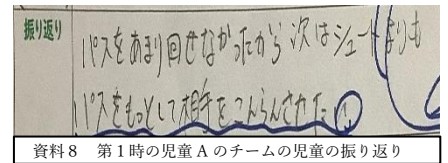 振り返り
パスをあまり回せなかったから次はシュートよりも
パスをもっとして相手をこんらんさせた
資料8 第1時の児童Aのチームの児童の振り返り